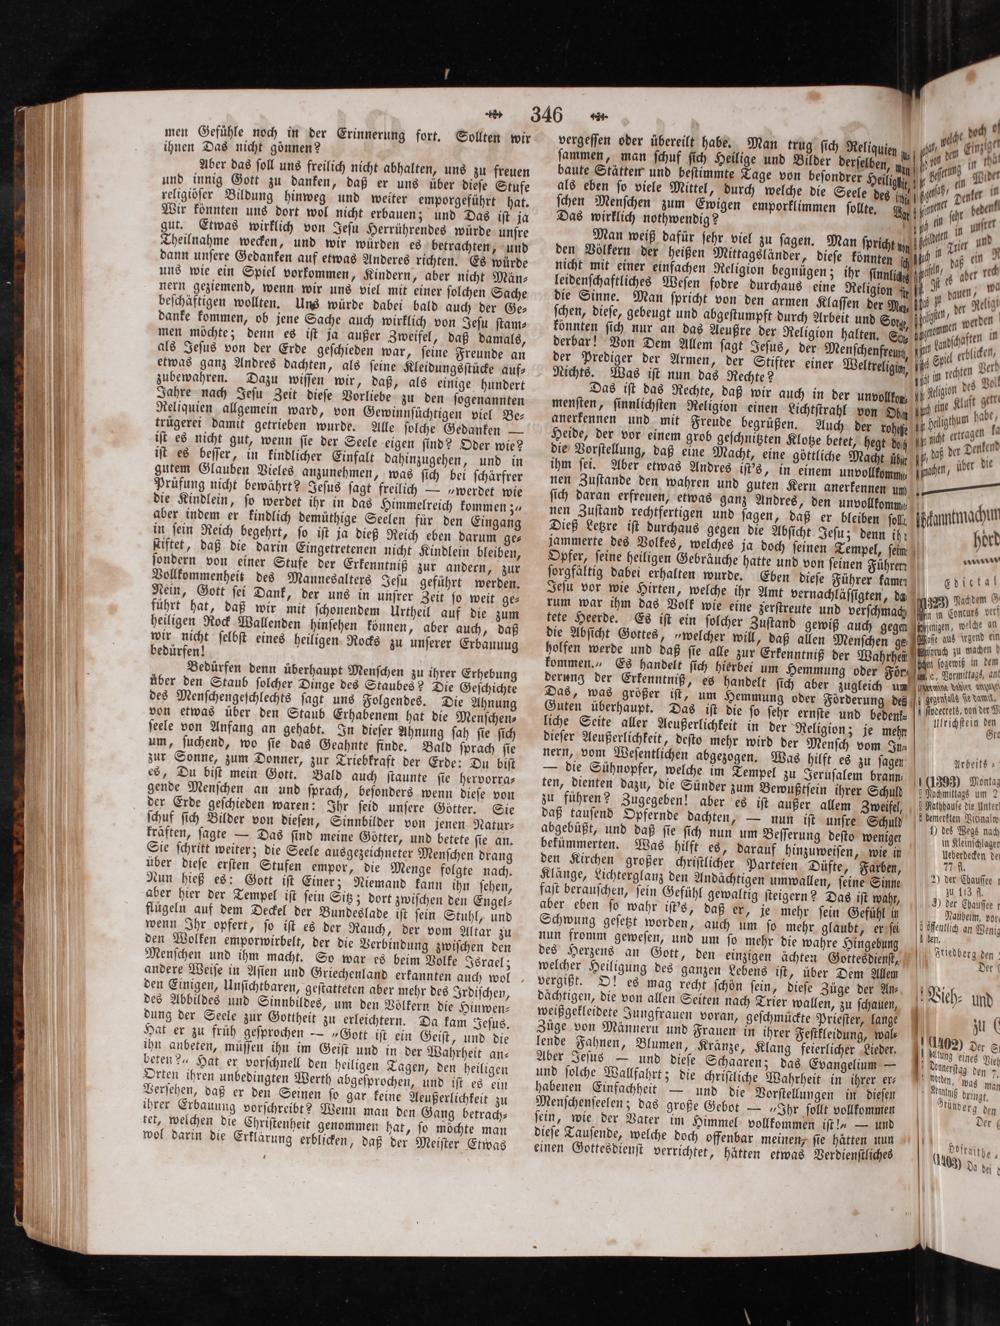 346
men Gefühle noch in der Erinnerung fort. Sollten wir
ihnen Das nicht gönnen?
Aber das soll uns freilich nicht abhalten, uns zu freuen
und innig Gott zu danken, daß er uns über diese Stufe
religiöser Bildung hinweg und weiter emporgeführt hat.
Wir könnten uns dort wol nicht erbauen; und Das ist ja
gut. Etwas wirklich von Jesu Herrührendes würde unsre
Theilnahme wecken, und wir würden es betrachten, und
dann unsere Gedanken auf etwas Anderes richten. Es würde
uns wie ein Spiel vorkommen, Kindern, aber nicht Män-
nern geziemend, wenn wir uns viel mit einer solchen Sache
beschäftigen wollten. Uns würde dabei bald auch der Ge-
danke kommen, ob jene Sache auch wirklich von Jesu stam-
men möchte; denn es ist ja außer Zweifel, daß damals,
als Jesus von der Erde geschieden war, seine Freunde an
etwas ganz Andres dachten, als seine Kleidungsstücke auf-
zubewahren. Dazu wissen wir, daß, als einige hundert
Jahre nach Jesu Zeit diese Vorliebe zu den sogenannten
Reliquien allgemein ward, von Gewinnsüchtigen viel Be-
trügerei damit getrieben wurde. Alle solche Gedanken —
ist es nicht gut, wenn sie der Seele eigen sind? Oder wie?
ist es besser, in kindlicher Einfalt dahinzugehen, und in
gutem Glauben Vieles anzunehmen, was sich bei schärfrer
Prüfung nicht bewährt? Jesus sagt freilich — „werdet wie
die Kindlein, so werdet ihr in das Himmelreich kommen;“
aber indem er kindlich demüthige Seelen für den Eingang
in sein Reich begehrt, so ist ja dieß Reich eben darum ge-
stiftet, daß die darin Eingetretenen nicht Kindlein bleiben,
sondern von einer Stufe der Erkenntniß zur andern, zur
Vollkommenheit des Mannesalters Jesu geführt werden.
Nein, Gott sei Dank, der uns in unsrer Zeit so weit ge-
führt hat, daß wir mit schonendem Urtheil auf die zum
heiligen Rock Wallenden hinsehen können, aber auch, daß
wir nicht selbst eines heiligen Rocks zu unserer Erbauung
bedürfen!
Bedürfen denn überhaupt Menschen zu ihrer Erhebung
über den Staub solcher Dinge des Staubes? Die Geschichte
des Menschengeschlechts sagt uns Folgendes. Die Ahnung
von etwas über den Staub Erhabenem hat die Menschen-
seele von Anfang an gehabt. In dieser Ahnung sah sie sich
um, suchend, wo sie das Geahnte finde. Bald sprach sie
zur Sonne, zum Donner, zur Triebkraft der Erde: Du bist
es, Du bist mein Gott. Bald auch staunte sie hervorra-
gende Menschen an und sprach, besonders wenn diese von
der Erde geschieden waren: Ihr seid unsere Götter. Sie
schuf sich Bilder von diesen, Sinnbilder von jenen Natur-
kräften, sagte — Das sind meine Götter, und betete sie an.
Sie schritt weiter; die Seele ausgezeichneter Menschen drang
über diese ersten Stufen empor, die Menge folgte nach.
Nun hieß es: Gott ist Einer; Niemand kann ihn sehen,
aber hier der Tempel ist sein Sitz; dort zwischen den Engel-
flügeln auf dem Deckel der Bundeslade ist sein Stuhl, und
wenn Ihr opfert, so ist es der Rauch, der vom Altar zu
den Wolken emporwirbelt, der die Verbindung zwischen den
Menschen und ihm macht. So war es beim Volke Israel;
andere Weise in Asien und Griechenland erkannten auch wol
den Einigen, Unsichtbaren, gestatteten aber mehr des Irdischen,
des Abbildes und Sinnbildes, um den Völkern die Hinwen-
dung der Seele zur Gottheit zu erleichtern. Da kam Jesus.
Hat er zu früh gesprochen — „Gott ist ein Geist, und die
ihn anbeten, müssen ihn im Geist und in der Wahrheit an-
beten?“ Hat er vorschnell den heiligen Tagen, den heiligen
Orten ihren unbedingten Werth abgesprochen, und ist es ein
Versehen, daß er den Seinen so gar keine Aeußerlichkeit zu
ihrer Erbauung vorschreibt? Wenn man den Gang betrach-
tet, welchen die Christenheit genommen hat, so möchte man
wol darin die Erklärung erblicken, daß der Meister Etwas
vergessen oder übereilt habe. Man trug sich Reliquien
sammen, man schuf sich Heilige und Bilder derselben, man
baute Stätten und bestimmte Tage von besondrer Heiligkeit,
als eben so viele Mittel, durch welche die Seele des
schen Menschen zum Ewigen emporklimmen sollte. War
Das wirklich nothwendig?
Man weiß dafür sehr viel zu sagen. Man spricht von
den Völkern der heißen Mittagsländer, diese könnten sich
nicht mit einer einfachen Religion begnügen; ihr sinnliches
leidenschaftliches Wesen fodre durchaus eine Religion für
die Sinne. Man spricht von den armen Klassen der Men-
schen, diese, gebeugt und abgestumpft durch Arbeit und Sorge,
könnten sich nur an das Aeußre der Religion halten. Son-
derbar! Von Dem Allem sagt Jesus, der Menschenfreund,
der Prediger der Armen, der Stifter einer Weltreligion,
Nichts. Was ist nun das Rechte?
Das ist das Rechte, daß wir auch in der unvollkom-
mensten, sinnlichsten Religion einen Lichtstrahl von Oben
anerkennen und mit Freude begrüßen. Auch der roheste
Heide, der vor einem grob geschnitzten Klotze betet, hegt doch
die Vorstellung, daß eine Macht, eine göttliche Macht über
ihm sei. Aber etwas Andres ist's, in einem unvollkomme-
nen Zustande den wahren und guten Kern anerkennen und
sich daran erfreuen, etwas ganz Andres, den unvollkomme-
nen Zustand rechtfertigen und sagen, daß er bleiben soll.
Dieß Letzre ist durchaus gegen die Absicht Jesu; denn ihn
jammerte des Volkes, welches ja doch seinen Tempel, seine
Opfer, seine heiligen Gebräuche hatte und von seinen Führern
sorgfältig dabei erhalten wurde. Eben diese Führer kamen
Jesu vor wie Hirten, welche ihr Amt vernachlässigten, da-
rum war ihm das Volk wie eine zerstreute und verschmach-
tete Heerde. Es ist ein solcher Zustand gewiß auch gegen
die Absicht Gottes, „welcher will, daß allen Menschen ge-
holfen werde und daß sie alle zur Erkenntniß der Wahrheit
kommen.“ Es handelt sich hierbei um Hemmung oder För-
derung der Erkenntniß, es handelt sich aber zugleich um
Das, was größer ist, um Hemmung oder Förderung des
Guten überhaupt. Das ist die so sehr ernste und bedenk-
liche Seite aller Aeußerlichkeit in der Religion; je mehr
dieser Aeußerlichkeit, desto mehr wird der Mensch vom In-
nern, vom Wesentlichen abgezogen. Was hilft es zu sagen
— die Sühnopfer, welche im Tempel zu Jerusalem brann-
ten, dienten dazu, die Sünder zum Bewußtsein ihrer Schuld
zu führen? Zugegeben! aber es ist außer allem Zweifel,
daß tausend Opfernde dachten, — nun ist unsre Schuld
abgebüßt, und daß sie sich nun um Besserung desto weniger
bekümmerten. Was hilft es, darauf hinzuweisen, wie in
den Kirchen großer christlicher Parteien Düfte, Farben,
Klänge, Lichterglanz den Andächtigen umwallen, seine Sinne
fast berauschen, sein Gefühl gewaltig steigern? Das ist wahr,
aber eben so wahr ist's, daß er, je mehr sein Gefühl in
Schwung gesetzt worden, auch um so mehr glaubt, er sei
nun fromm gewesen, und um so mehr die wahre Hingebung
des Herzens an Gott, den einzigen ächten Gottesdienst,
welcher Heiligung des ganzen Lebens ist, über Dem Allem
vergißt. O! es mag recht schön sein, diese Züge der An-
dächtigen, die von allen Seiten nach Trier wallen, zu schauen,
weißgekleidete Jungfrauen voran, geschmückte Priester, lange
Züge von Männern und Frauen in ihrer Festkleidung, wal-
lende Fahnen, Blumen, Kränze, Klang feierlicher Lieder.
Aber Jesus — und diese Schaaren; das Evangelium —
und solche Wallfahrt; die christliche Wahrheit in ihrer er-
habenen Einfachheit — und die Vorstellungen in diesen
Menschenseelen; das große Gebot — „Ihr sollt vollkommen
sein, wie der Vater im Himmel vollkommen ist!“ — und
diese Tausende, welche doch offenbar meinen, sie hätten nun
einen Gottesdienst verrichtet, hätten etwas Verdienstliches
Edictal
(1323) Nachdem
Ulrichstein den
Arbeits-
(1393) Montag
Nachmittags um 2
1) des Wegs nach
in Kleinschlager
77 fl.
2) der Chaussee
zu 113 fl.
3) der Chaussee
Nauheim,
Friedberg den
Der
Vieh- und
zu
(1402) Der
Donnerstag den 7.
Grünberg den
Der
Hofraithe
(1403) Da bei